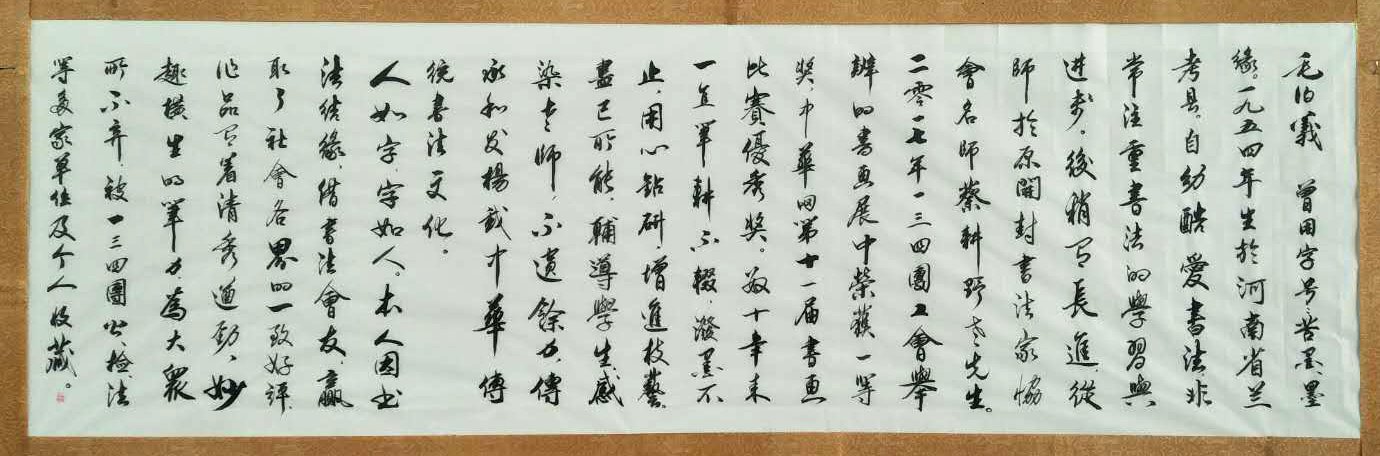 毛伯羲　曾用字号，苦墨，墨
缘。一九五四年生於河南省兰
考县，自幼酷爱書法，非
常注重書法的學習與
进步。後稍有長進，從
師於原開封書法家協
會名師蔡耕野老先生。
二零一七年一三四團工會舉
辦的書画展中榮獲一等
奖，中華四第十一届書画
比賽優秀奖。數十年来
一直笔耕不輟，潑墨不
止，用心鈷研，增進技藝，
盡已所能，輔導學生，感
染老師，不遺餘力，傳
承和发揚我中華傳
统書法文化。
人如字，字如人。本人因书
法结缘，借書法會友，赢
取了社會各界的一致好評，
作品有着清秀遒劲、妙
趣横生的筆力，為大衆
所不弃，被一三四團公、检、法
等多家单位及个人收藏。